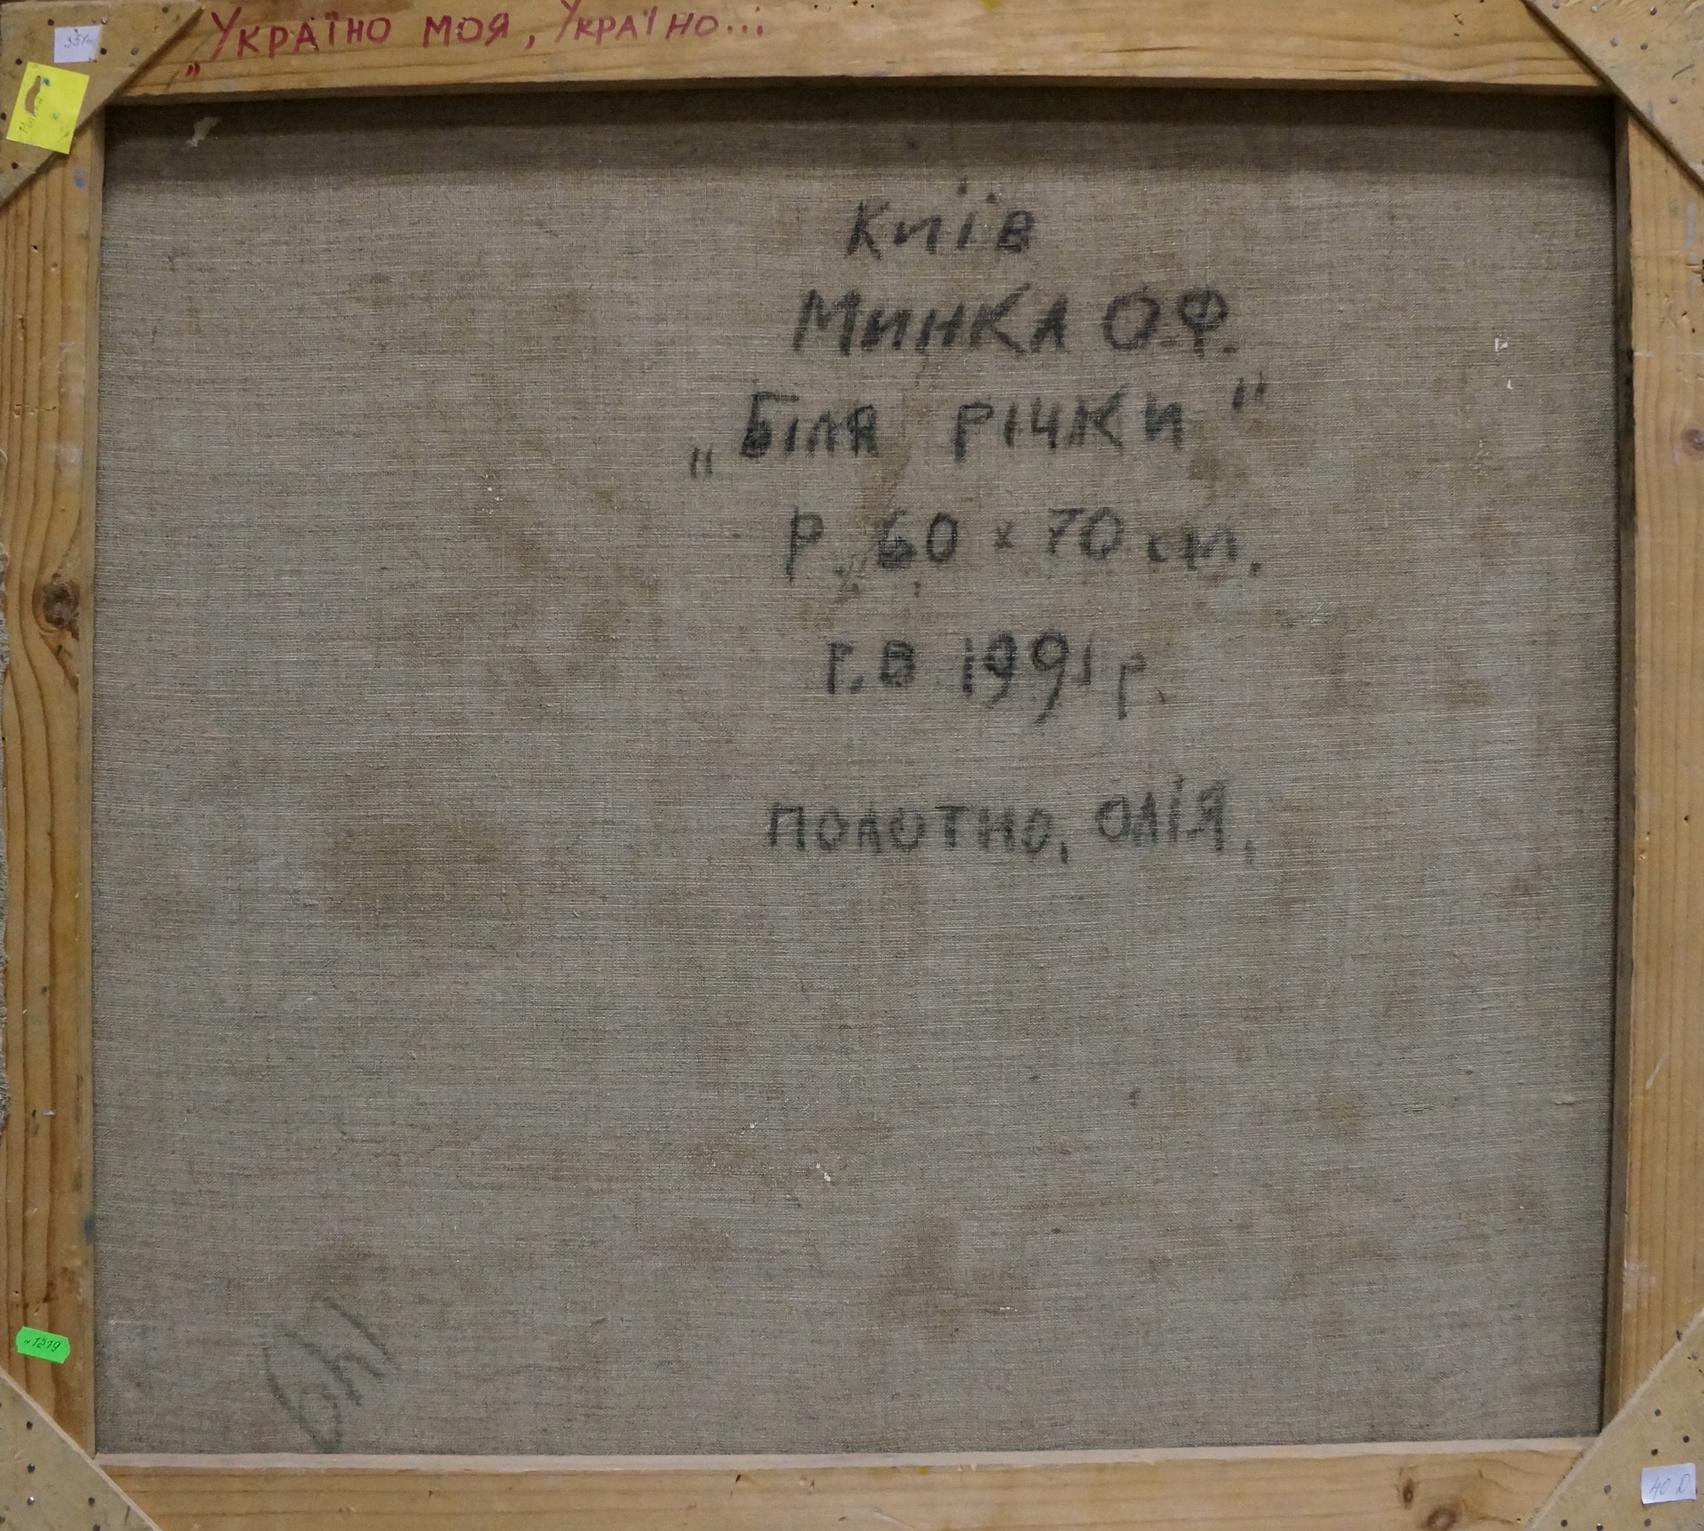 „Україно моя, Україно...
Київ
Минка О.Ф.
„Біля річки"
Р. 60 x 70 см.
Г.В 1991 р.
полотно, олія,
149
1219
40 D